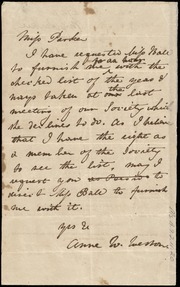 Miss Parker
I have requested Miss Ball
to furnish me with the
checked list of the yeas &
nays taken at the last
meeting of our Society which
she declines to do. As I believe
that I have the right as
a member of the Society
to see the list, may I
request you
desire Miss Ball to furnish
me with it.
yrs &c
Anne W. Weston